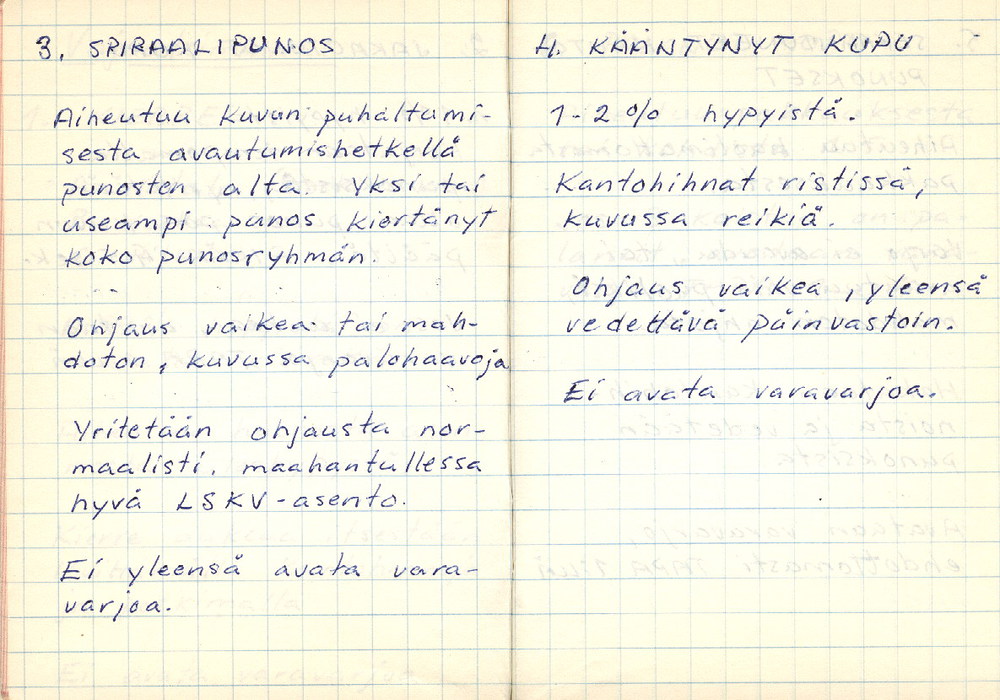 3. SPIRAALIPUNOS
Aiheutuu kuvun puhaltumi-
sesta avautumishetkellä
punosten alta. Yksi tai
useampi punos kiertänyt
koko punosryhmän.
Ohjaus vaikea tai mah-
doton, kuvussa palohaavoja
Yritetään ohjausta nor-
maalisti, maahantullessa
hyvä LSKV-asento.
Ei yleensä avata vara-
varjoa.
4. KÄÄNTYNYT KUPU
1-2 % hypyistä.
Kantohihnat ristissä,
kuvussa reikiä.
Ohjaus vaikea, yleensä
vedettävä päinvastoin.
Ei avata varavarjoa.